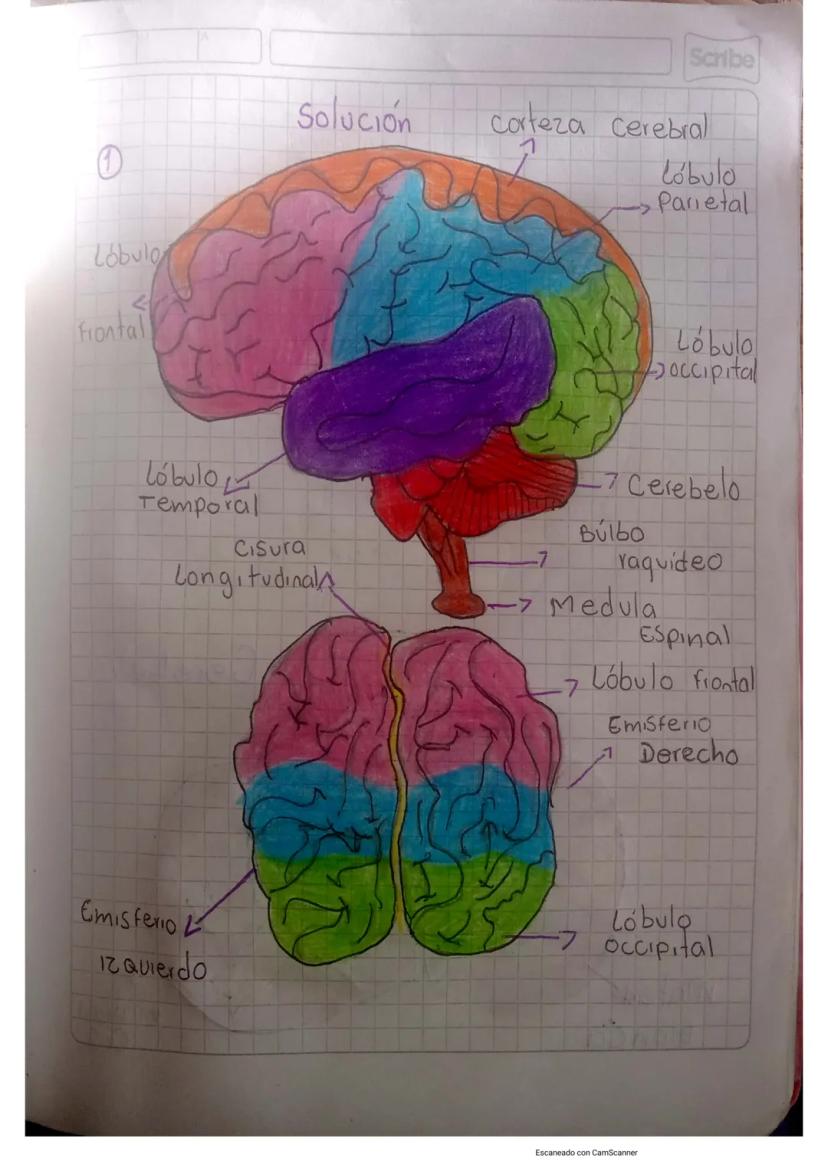 Scribe
Solución
corteza cerebral
1
Lóbulo
Parietal
Lóbulo
frontal
Lóbulo
occipital
Lóbulo
Temporal
Cerebelo
Cisura
Longitudinal
Búlbo
raquídeo
Medula
Espinal
Lóbulo frontal
Emisferio
Derecho
Emisferio
izquierdo
Lóbulo
occipital
Escaneado con CamScanner